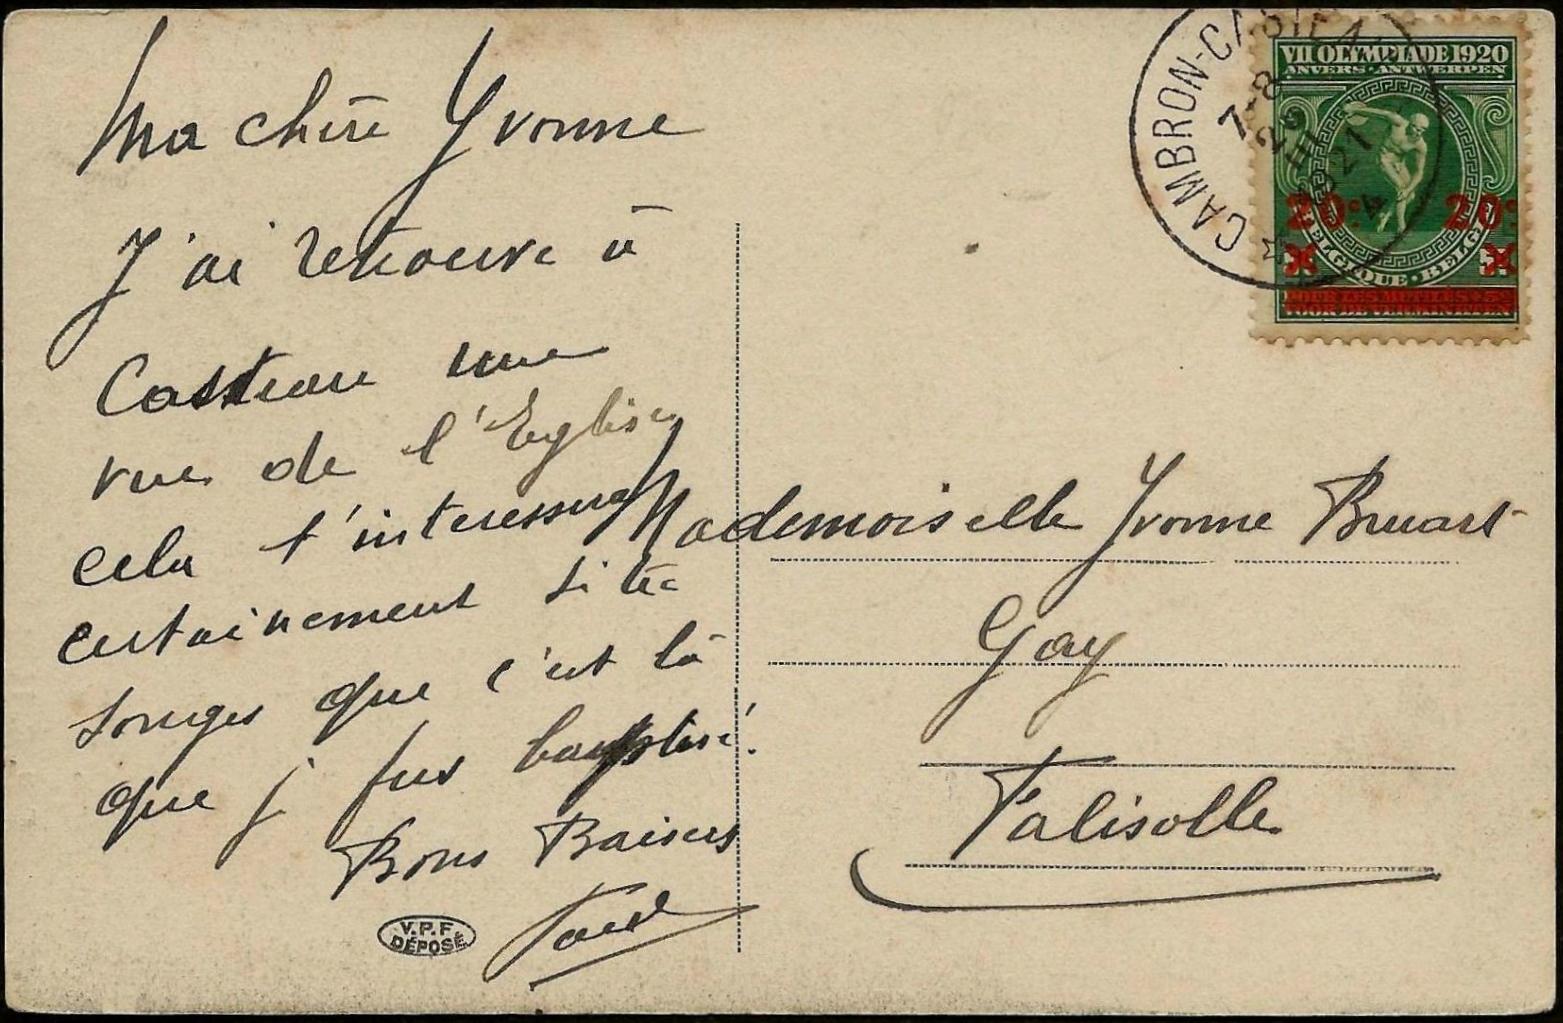 Ma chère Yvonne
J'ai retrouvé à
Casteau une
vue de l'Eglise,
cela t'interessera
certainement si tu
songes que c'est là
que j fus baptisé.
Bons Baisers
V.P.F.
DÉPOSÉ
CAMBRON-CASTEAU
7-8
III
1921
4
VII OLYMPIADE 1920
ANVERS · ANTWERPEN
20c 20c
BELGIQUE · BELGIË
Mademoiselle Yvonne Bruart
Gay
Falisolle